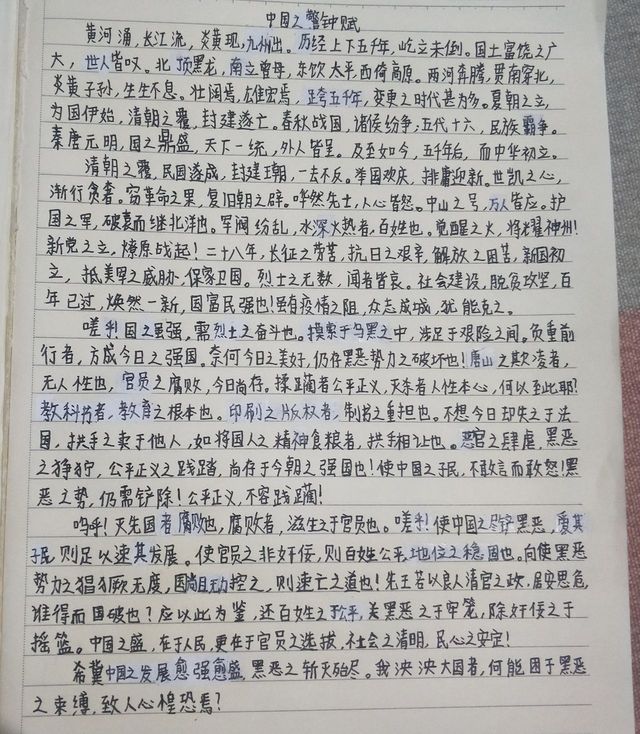 中国之警钟赋
黄河涌，长江流，炎黄现，九州出。历经上下五千年，屹立未倒。国土富饶之广
大，世人皆叹。北顶黑龙，南立曾母，东饮太平西倚高原。两河奔腾，贯南穿北，
炎黄子孙，生生不息。壮阔焉，雄宏焉，跨五千年，变更之时代甚为多。夏朝之立，
为国伊始，清朝之覆，封建遂亡。春秋战国，诸侯纷争；五代十六，民族霸争。
秦唐元明，国之鼎盛，天下一统，外人皆呈。及至如今，五千年后，而中华初立。
清朝之覆，民国遂成，封建王朝，一去不反。举国欢庆，排膺迎新。世凯之心，
渐行贪奢。窃革命之果，复旧朝之辟。哗然先士，人心皆怨。中山之号，万人皆应。护
国之军，破袁而继北洋也。军阀纷乱，水深火热者，百姓也。觉醒之火，将耀神州！
新党之立，燎原战起！二十八年，长征之劳苦，抗日之艰辛，解放之困苦，新国初
立，抵美军之威胁，保家卫国。烈士之无数，闻者皆哀。社会建设，脱负攻坚，百
年已过，焕然一新，国富民强也！虽有疫情之阻，众志成城，犹能克之。
嗟乎！国之虽强，需烈士之奋斗也。摸索于乌黑之中，涉足于艰险之间。负重前
行者，方成今日之强国。奈何今日之美好，仍存黑恶势力之破坏也！唐山之欺凌者，
无人性也，官员之腐败，今日尚存。揉蹦者公平正义，灭东者人性本心，何以至此耶？
教科书者，教育之根本也。印刷之版权者，制书之重担也。不想今日却失之于法
国，拱手之卖于他人，如将国人之精神食粮者，拱手相让也。恶官之肆虐，黑恶
之狰狞，公平正义之践踏，尚存于今朝之强国也！使中国之子民，不敢言而敢怒！黑
恶之势，仍需铲除！公平正义，不容践蹦！
呜乎！灭先国者腐败也，腐败者，滋生之于官员也。嗟乎！使中国之尽铲黑恶，爱其
子民，则足以速其发展。使官员之非奸佞，则百姓公平，地位之稳固也。向使黑恶
势力之猖獗无度，因尚且无力控之，则速亡之道也！先王若以良人清官之政，居安思危，
谁得而国破也？应以此为鉴，还百姓之于公平，关黑恶之于牢笼，除奸佞之于
摇篮。中国之盛，在于人民，更在于官员之选拔，社会之清明，民心之安定！
希冀中国之发展愈强愈盛，黑恶之斩灭殆尽。我泱泱大国者，何能困于黑恶
之束缚，致人心惶恐焉？